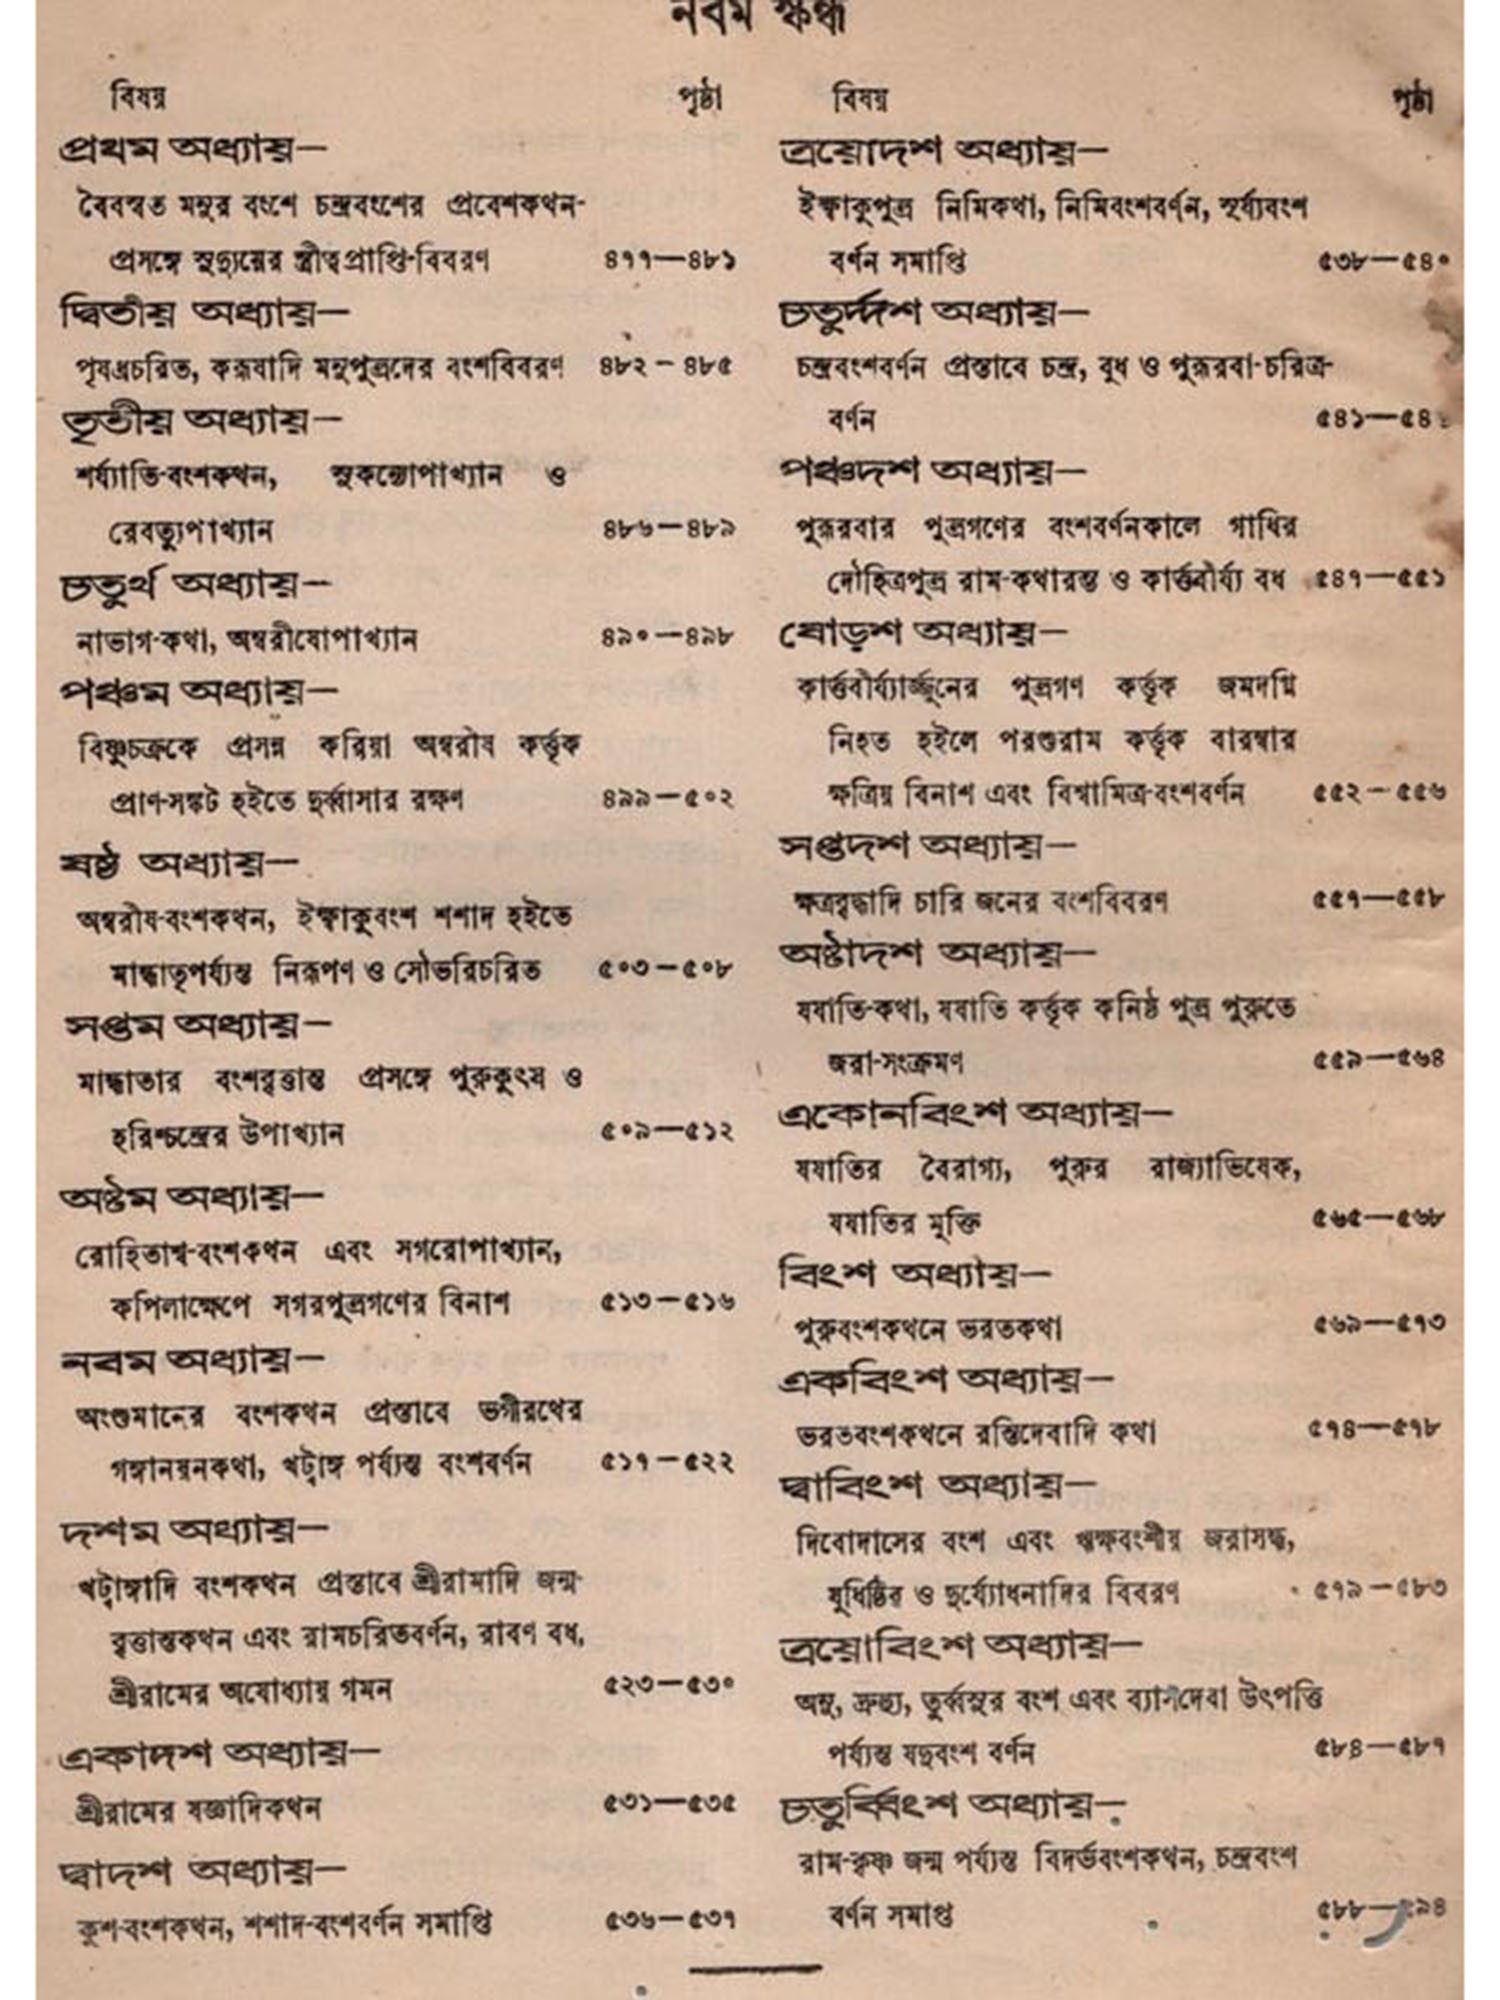 নবম স্কন্ধ
বিষয় পৃষ্ঠা
প্রথম অধ্যায়—
বৈবস্বত মনুর বংশে চন্দ্রবংশের প্রবেশকথন-
প্রসঙ্গে সুদ্যুম্নের স্ত্রীত্বপ্রাপ্তি-বিবরণ ৪৭৭—৪৮১
দ্বিতীয় অধ্যায়—
পৃষধ্রচরিত, করূষাদি মনুপুত্রদের বংশবিবরণ ৪৮২—৪৮৫
তৃতীয় অধ্যায়—
শর্য্যাতি-বংশকথন, সুকন্যোপাখ্যান ও
রেবত্যুপাখ্যান ৪৮৬—৪৮৯
চতুর্থ অধ্যায়—
নাভাগ-কথা, অম্বরীষোপাখ্যান ৪৯০—৪৯৮
পঞ্চম অধ্যায়—
বিষ্ণুচক্রকে প্রসন্ন করিয়া অম্বরীষ কর্ত্তৃক
প্রাণ-সঙ্কট হইতে দুর্ব্বাসার রক্ষণ ৪৯৯—৫০২
ষষ্ঠ অধ্যায়—
অম্বরীষ-বংশকথন, ইক্ষ্বাকুবংশ শশাদ হইতে
মান্ধাতৃপর্য্যন্ত নিরূপণ ও সৌভরিচরিত ৫০৩—৫০৮
সপ্তম অধ্যায়—
মান্ধাতার বংশবৃত্তান্ত প্রসঙ্গে পুরুকুৎস ও
হরিশ্চন্দ্রের উপাখ্যান ৫০৯—৫১২
অষ্টম অধ্যায়—
রোহিতাশ্ব-বংশকথন এবং সগরোপাখ্যান,
কপিলাক্ষেপে সগরপুত্রগণের বিনাশ ৫১৩—৫১৬
নবম অধ্যায়—
অংশুমানের বংশকথন প্রস্তাবে ভগীরথের
গঙ্গানয়নকথা, খট্বাঙ্গ পর্য্যন্ত বংশবর্ণন ৫১৭—৫২২
দশম অধ্যায়—
খট্বাঙ্গাদি বংশকথন প্রস্তাবে শ্রীরামাদি জন্ম-
বৃত্তান্তকথন এবং রামচরিতবর্ণন, রাবণ বধ,
শ্রীরামের অযোধ্যায় গমন ৫২৩—৫৩০
একাদশ অধ্যায়—
শ্রীরামের যজ্ঞাদিকথন ৫৩১—৫৩৫
দ্বাদশ অধ্যায়—
কুশ-বংশকথন, শশাদ-বংশবর্ণন সমাপ্তি ৫৩৬—৫৩৭
বিষয় পৃষ্ঠা
ত্রয়োদশ অধ্যায়—
ইক্ষ্বাকুপুত্র নিমিকথা, নিমিবংশবর্ণন, সূর্য্যবংশ
বর্ণন সমাপ্তি ৫৩৮—৫৪০
চতুর্দ্দশ অধ্যায়—
চন্দ্রবংশবর্ণন প্রস্তাবে চন্দ্র, বুধ ও পুরূরবা-চরিত্র-
বর্ণন
পঞ্চদশ অধ্যায়—
পুরূরবার পুত্রগণের বংশবর্ণনকালে গাধির
দৌহিত্রপুত্র রাম-কথারম্ভ ও কার্ত্তবীর্য্য বধ ৫৪৭—৫৫১
ষোড়শ অধ্যায়—
কার্ত্তবীর্য্যার্জ্জুনের পুত্রগণ কর্ত্তৃক জমদগ্নি
নিহত হইলে পরশুরাম কর্ত্তৃক বারম্বার
ক্ষত্রিয় বিনাশ এবং বিশ্বামিত্র-বংশবর্ণন ৫৫২—৫৫৬
সপ্তদশ অধ্যায়—
ক্ষত্রবৃদ্ধাদি চারি জনের বংশবিবরণ ৫৫৭—৫৫৮
অষ্টাদশ অধ্যায়—
যযাতি-কথা, যযাতি কর্ত্তৃক কনিষ্ঠ পুত্র পুরুতে
জরা-সংক্রমণ ৫৫৯—৫৬৪
একোনবিংশ অধ্যায়—
যযাতির বৈরাগ্য, পুরুর রাজ্যাভিষেক,
যযাতির মুক্তি ৫৬৫—৫৬৮
বিংশ অধ্যায়—
পুরুবংশকথনে ভরতকথা ৫৬৯—৫৭৩
একবিংশ অধ্যায়—
ভরতবংশকথনে রন্তিদেবাদি কথা ৫৭৪—৫৭৮
দ্বাবিংশ অধ্যায়—
দিবোদাসের বংশ এবং ঋক্ষবংশীয় জরাসন্ধ,
যুধিষ্ঠির ও দুর্য্যোধনাদির বিবরণ ৫৭৯—৫৮৩
ত্রয়োবিংশ অধ্যায়—
অনু, দ্রুহ্যু, তুর্ব্বসুর বংশ এবং উৎপত্তি
পর্য্যন্ত যদুবংশ বর্ণন ৫৮৪—৫৮৭
চতুর্ব্বিংশ অধ্যায়—
রাম-কৃষ্ণ জন্ম পর্য্যন্ত বিদর্ভবংশকথন, চন্দ্রবংশ
বর্ণন সমাপ্ত ৫৮৮—৫৯৪